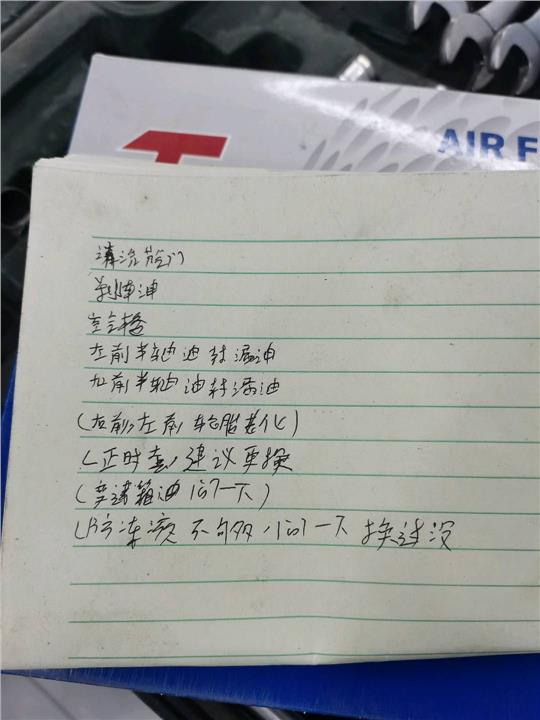 AIR F
清洗节气门
刹车油
空气格
左前半轴油封漏油
右前半轴油封漏油
(右前,左前轮胎老化)
(正时套,建议更换
(变速箱油问一下)
(防冻液不够,问一下 换过没